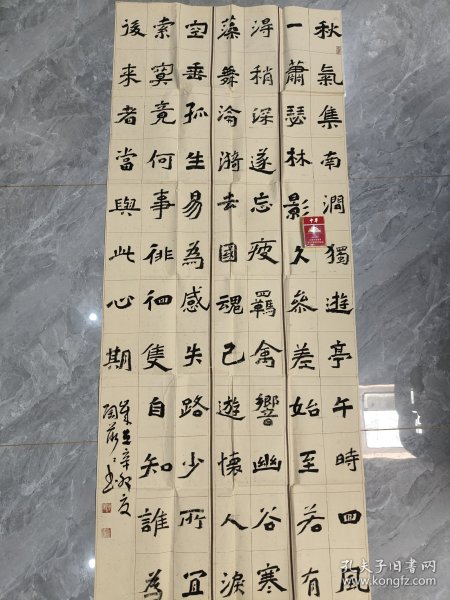 秋氣集南澗獨遊亭午時回風
一蕭瑟林影久參差始至若有
淂稍深遂忘疲羈禽響幽谷寒
藻舞淪漪去國魂已遊懷人淚
空垂孤生易為感失路少所宜
索寞竟何事徘徊隻自知誰為
後來者當與此心期
辛卯夏
中華
孔夫子旧书网